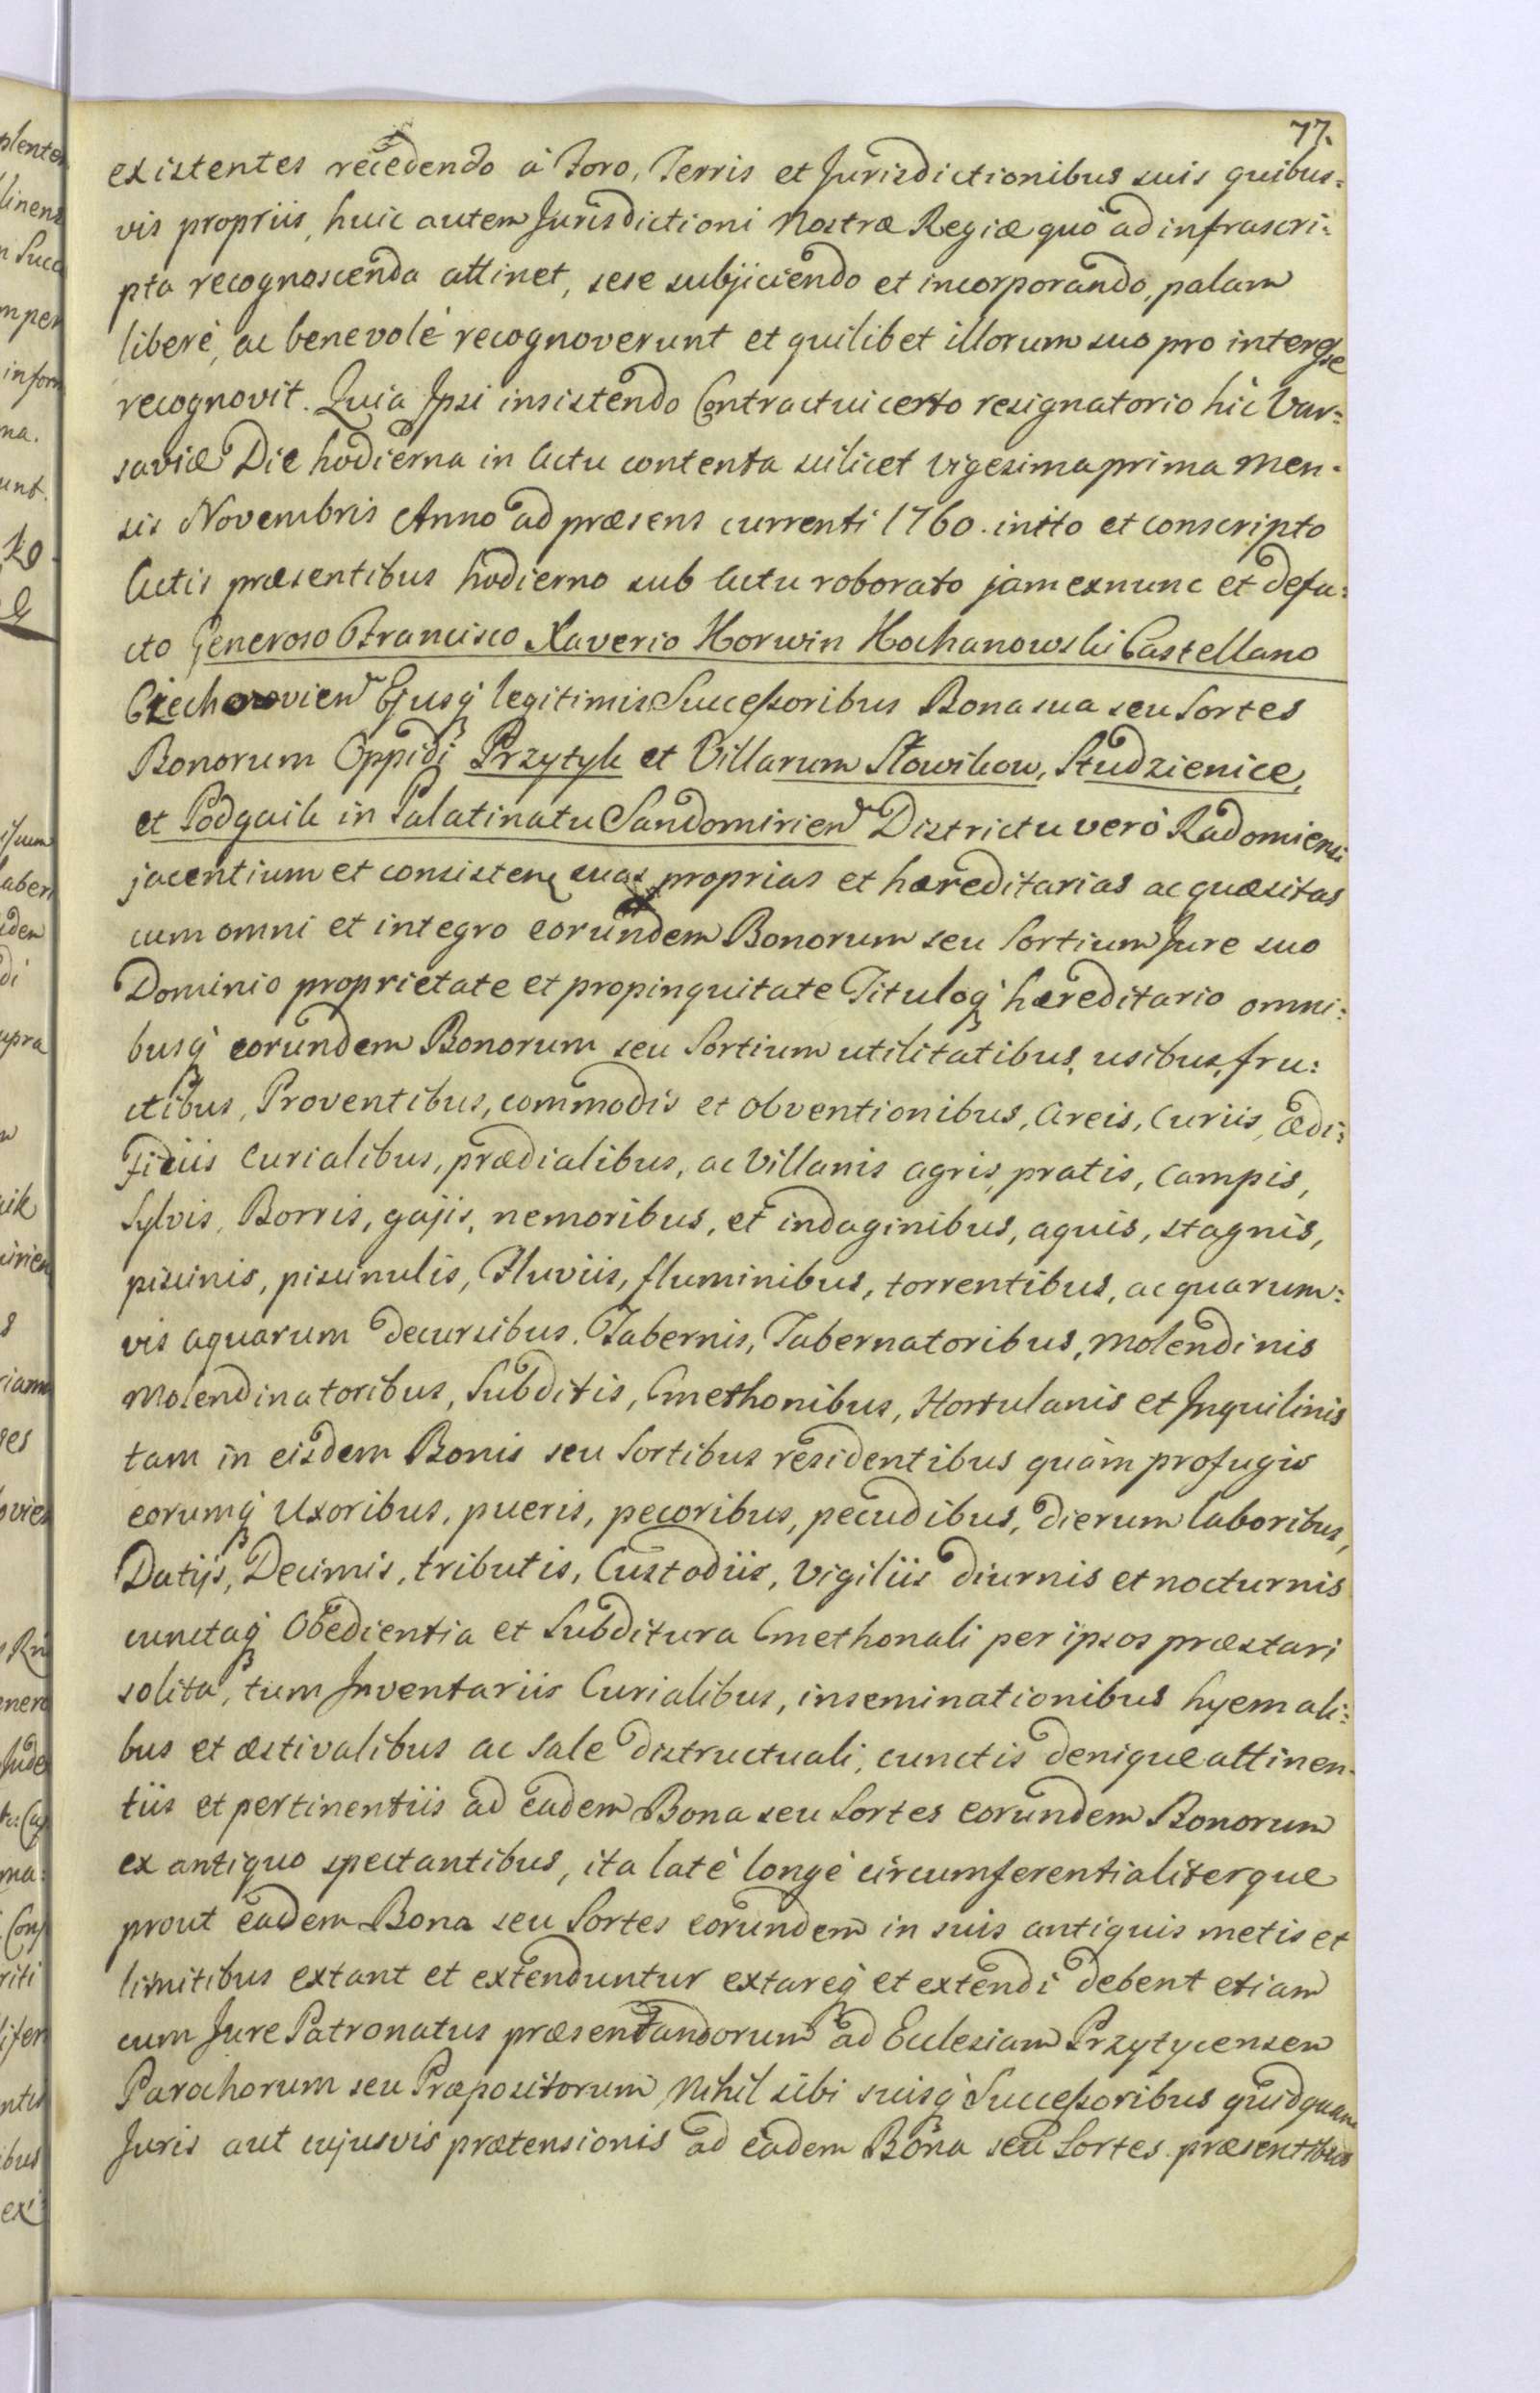 77.
existentes recedendo à Foro, Terris et Jurisdictionibus suis quibus:
vis propriis, huic autem Jurisdictioni Nostræ Regiæ quò ad infrascri:
pta recognoscenda attinet, sese subjiciendo et incorporando, palam
liberè, ac benevolè recognoverunt et quilibet illorum suo pro interesse
recognovit. Quia Ipsi insistendo Contractui certo resignatorio hic Var:
saviæ Die hodierna in Actu contenta scilicet vigesima prima Men:
sis Novembris Anno ad præsens currenti 1760. inito et conscripto
Actis præsentibus hodierno sub Actu roborato jam exnunc et defa:
cto Generoso Francisco Xaverio Korwin Kochanowski Castellano
Ciechanovien Ejusq́ legitimis Successoribus Bona sua seu Sortes
Bonorum Oppidi Przytyk et Villarum Słowikow, Studzienice,
et Podgaik in Palatinatu Sandomirien Districtu verò Radomiensi
jacentium et consisten suas proprias et hæreditarias acquæsitas
cum omni et integro eorundem Bonorum seu Sortium Jure suo
Dominio proprietate et propinquitate Tituloq́ hæreditario omni:
busq́ eorundem Bonorum seu Sortium utilitatibus, usibus, fru:
ctibus, Proventibus, commodis et obventionibus, Areis, Curiis, ædi:
ficiis Curialibus, prædialibus, ac Villanis agris, pratis, Campis,
Sylvis, Borris, gajis, nemoribus, et indaginibus, aquis, stagnis,
piscinis, piscinulis, Fluviis, fluminibus, torrentibus, ac quarum:
vis aquarum decursibus. Tabernis, Tabernatoribus, Molendinis
Molendinatoribus, Subditis, Cmethonibus, Hortulanis et Inquilinis
tam in eisdem Bonis seu Sortibus residentibus quàm profugis
eorumq́ Uxoribus, pueris, pecoribus, pecudibus, dierum laboribus,
Datijs, Decimis, tributis, Custodiis, Vigiliis diurnis et nocturnis
cunctaq́ Obedientia et Subditura Cmethonali per ipsos præstari
solita, tum Inventariis Curialibus, inseminationibus hyemali:
bus et æstivalibus ac Sale distructuali, cunctis denique attinen:
tiis et pertinentiis ad eadem Bona seu Sortes eorundem Bonorum
ex antiquo spectantibus, ita latè longè circumferentialiterque
prout eadem Bona seu Sortes eorundem in suis antiquis metis et
limitibus extant et extenduntur extareq́ et extendi debent etiam
cum Jure Patronatus præsentandorum ad Ecclesiam Przytycensem
Parochorum seu Præpositorum, Nihil sibi suisq́ Successoribus quidquam
Juris aut cujusvis prætensionis ad eadem Bona seu Sortes præsentibus